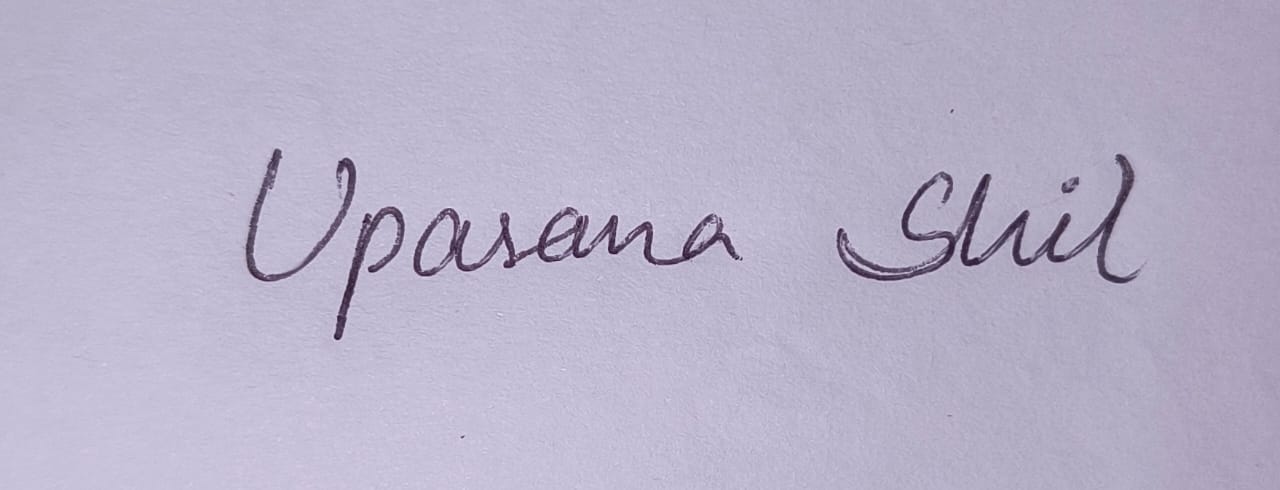 Upasana Shil